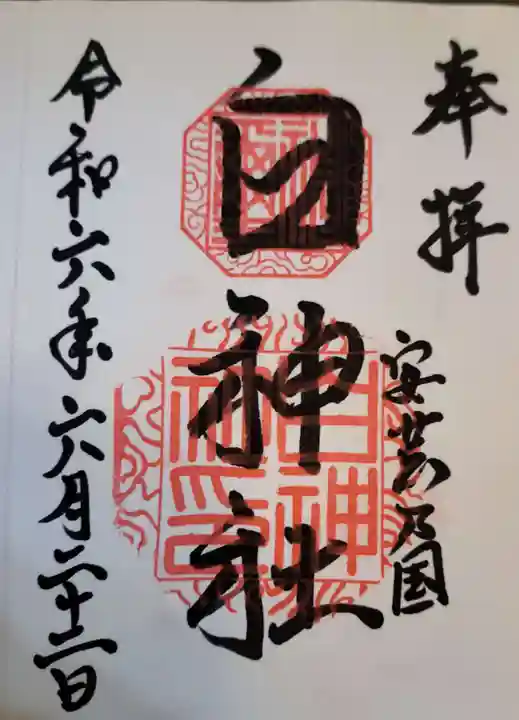 奉拝
安芸乃国
白神社
令和六年六月二十二日